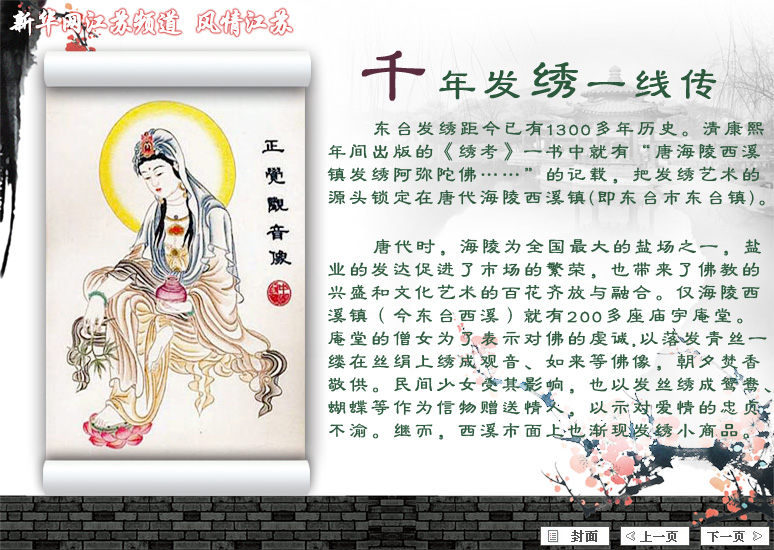 新华网江苏频道 风情江苏
千年发绣一线传
正覺觀音像
东台发绣距今已有1300多年历史。清康熙
年间出版的《绣考》一书中就有“唐海陵西溪
镇发绣阿弥陀佛……”的记载，把发绣艺术的
源头锁定在唐代海陵西溪镇(即东台市东台镇)。
唐代时，海陵为全国最大的盐场之一，盐
业的发达促进了市场的繁荣，也带来了佛教的
兴盛和文化艺术的百花齐放与融合。仅海陵西
溪镇（今东台西溪）就有200多座庙宇庵堂。
庵堂的僧女为了表示对佛的虔诚,以落发青丝一
缕在丝绢上绣成观音、如来等佛像，朝夕焚香
敬供。民间少女受其影响，也以发丝绣成鸳鸯、
蝴蝶等作为信物赠送情人，以示对爱情的忠贞
不渝。继而，西溪市面上也渐现发绣小商品。
封面 上一页 下一页